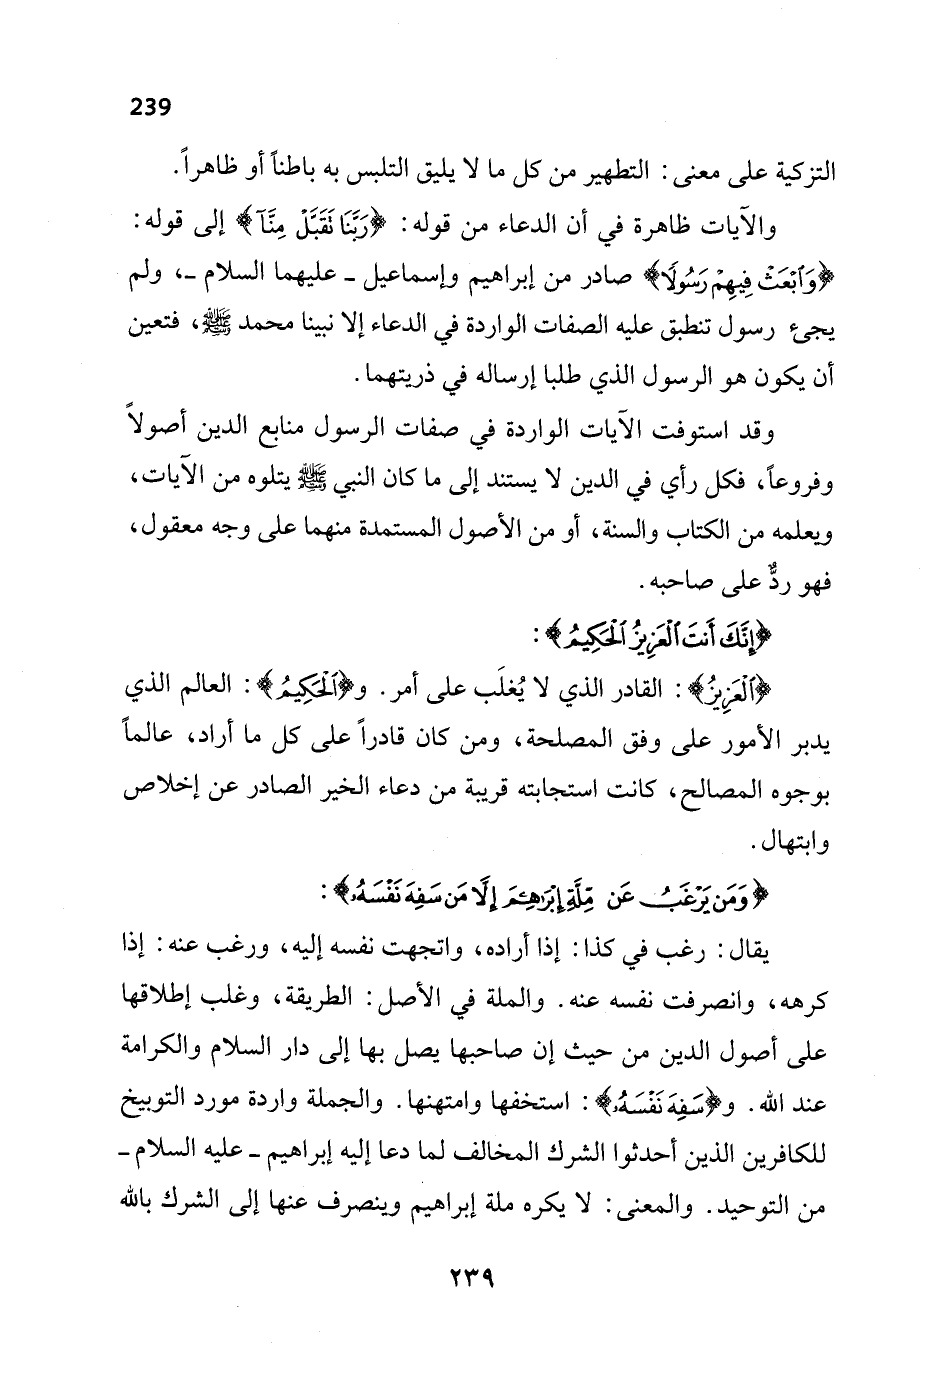 239
التزكية على معنى: التطهير من كل ما لا يليق التلبس به باطناً أو ظاهراً.
والآيات ظاهرة في أن الدعاء من قوله: ﴿رَبَّنَا تَقَبَّلْ مِنَّآ﴾ إلى قوله:
﴿وَٱبْعَثْ فِيهِمْ رَسُولًا﴾ صادر من إبراهيم وإسماعيل ـ عليهما السلام ـ، ولم
يجئ رسول تنطبق عليه الصفات الواردة في الدعاء إلا نبينا محمد ﷺ، فتعين
أن يكون هو الرسول الذي طلبا إرساله في ذريتهما.
وقد استوفت الآيات الواردة في صفات الرسول منابع الدين أصولاً
وفروعاً، فكل رأي في الدين لا يستند إلى ما كان النبي ﷺ يتلوه من الآيات،
ويعلمه من الكتاب والسنة، أو من الأصول المستمدة منهما على وجه معقول،
فهو ردٌّ على صاحبه.
﴿إِنَّكَ أَنتَ ٱلْعَزِيزُ ٱلْحَكِيمُ﴾:
﴿ٱلْعَزِيزُ﴾: القادر الذي لا يُغلَب على أمر. و﴿ٱلْحَكِيمُ﴾: العالم الذي
يدبر الأمور على وفق المصلحة، ومن كان قادراً على كل ما أراد، عالماً
بوجوه المصالح، كانت استجابته قريبة من دعاء الخير الصادر عن إخلاص
وابتهال.
﴿وَمَن يَرْغَبُ عَن مِّلَّةِ إِبْرَٰهِـۧمَ إِلَّا مَن سَفِهَ نَفْسَهُۥ﴾:
يقال: رغب في كذا: إذا أراده، واتجهت نفسه إليه، ورغب عنه: إذا
كرهه، وانصرفت نفسه عنه. والملة في الأصل: الطريقة، وغلب إطلاقها
على أصول الدين من حيث إن صاحبها يصل بها إلى دار السلام والكرامة
عند الله. و﴿سَفِهَ نَفْسَهُۥ﴾: استخفها وامتهنها. والجملة واردة مورد التوبيخ
للكافرين الذين أحدثوا الشرك المخالف لما دعا إليه إبراهيم ـ عليه السلام ـ
من التوحيد. والمعنى: لا يكره ملة إبراهيم وينصرف عنها إلى الشرك بالله
٢٣٩